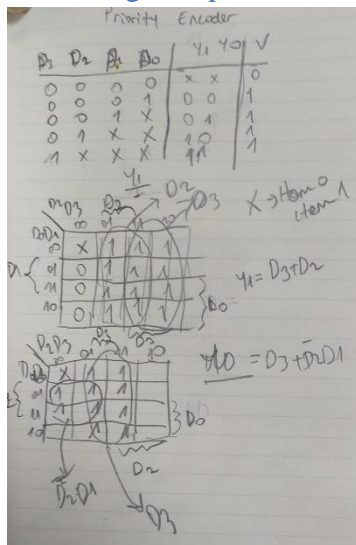 Priority Encoder
D3 D2 D1 D0 Y1 Y0 V
0 0 0 0 X X 0
0 0 0 1 0 0 1
0 0 1 X 0 1 1
0 1 X X 1 0 1
1 X X X 1 1 1
Y1
D2 D3
X →
D2D3 00 01 11 10
D0D1
00 X 1 1 1
D1 01 0 1 1 1
11 0 1 1 1
10 0 1 1 1
D0
Y1 = D3+D2
D2D3 00 01 11 10
00 X 1 1
01 1 1 1
11 1 1 1
10
D0
Y0 = D3+D̄2D1
D2
D̄2D1
D3